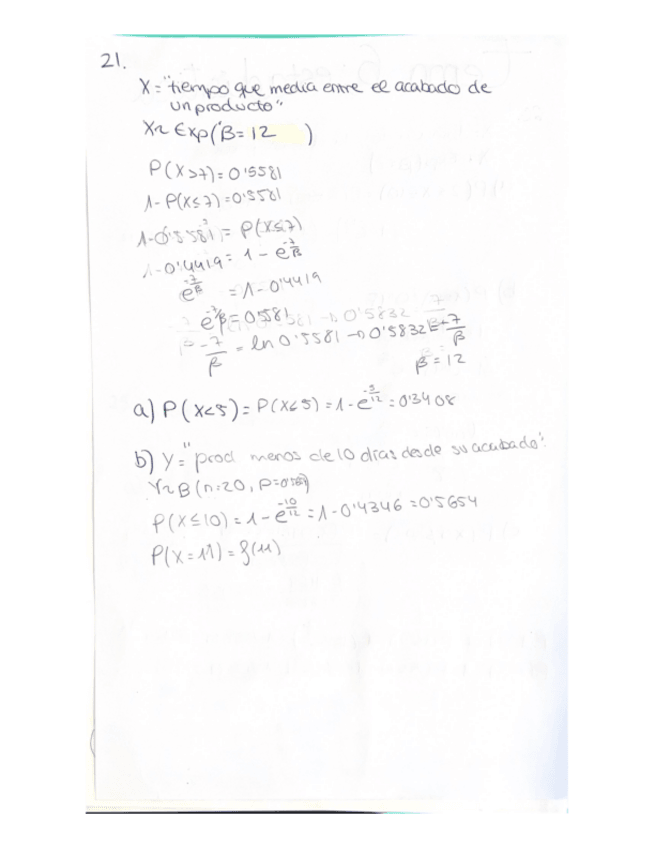 21.
X = "tiempo que media entre el acabado de
un producto"
X ~ Exp(β = 12 )
P(X > 7) = 0'5581
1 - P(X ≤ 7) = 0'5581
1 - 0'5581 = P(X ≤ 7)
1 - 0'4419 = 1 - e^(-7/β)
e^(-7/β) = 1 - 0'4419
e^(-7/β) = 0'5581
-7/β = ln 0'5581 → 0'5832 = 7/β
β = 12
a) P(X < 5) = P(X ≤ 5) = 1 - e^(-5/12) = 0'3408
b) Y = "prod menos de 10 días desde su acabado".
Y ~ B(n = 20, p =
P(X ≤ 10) = 1 - e^(-10/12) = 1 - 0'4346 = 0'5654
P(X = 11) = f(11)